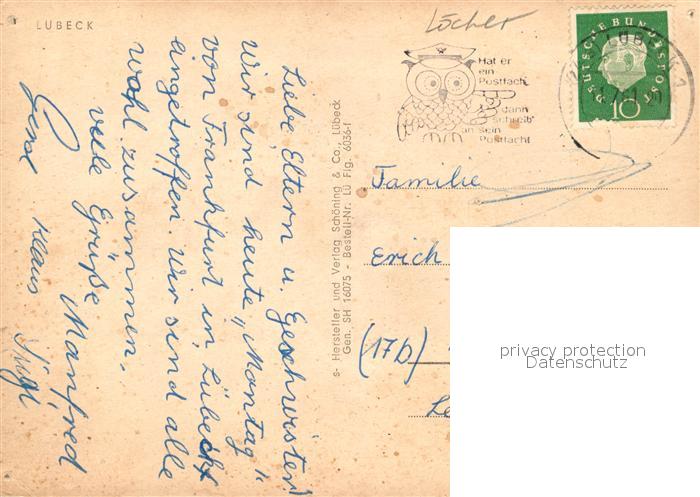 LÜBECK
Löcher
DEUTSCHE BUNDESPOST
10
LÜBECK
Hat er
ein
Postfach,
dann
schreib'
an sein
Postfach!
Familie
Erich
(17b)
privacy protection
Datenschutz
s- Hersteller und Verlag Schöning & Co., Lübeck
Gen. SH 16075 - Bestell-Nr. Lü Fig. 6036-f
Liebe Eltern u. Geschwister!
Wir sind heute „Montag"
von Frankfurt in Lübeck
eingetroffen. Wir sind alle
wohl zusammen.
viele Grüße Manfred
Klaus